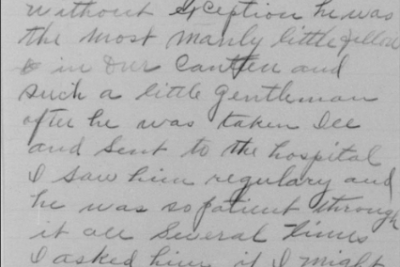 without exception he was
the most manly little fellow
& in our Canteen and
such a little gentleman
after he was taken Ill
and sent to the hospital
I saw him regulary and
he was so patient through
it all Several times
I asked him if I might